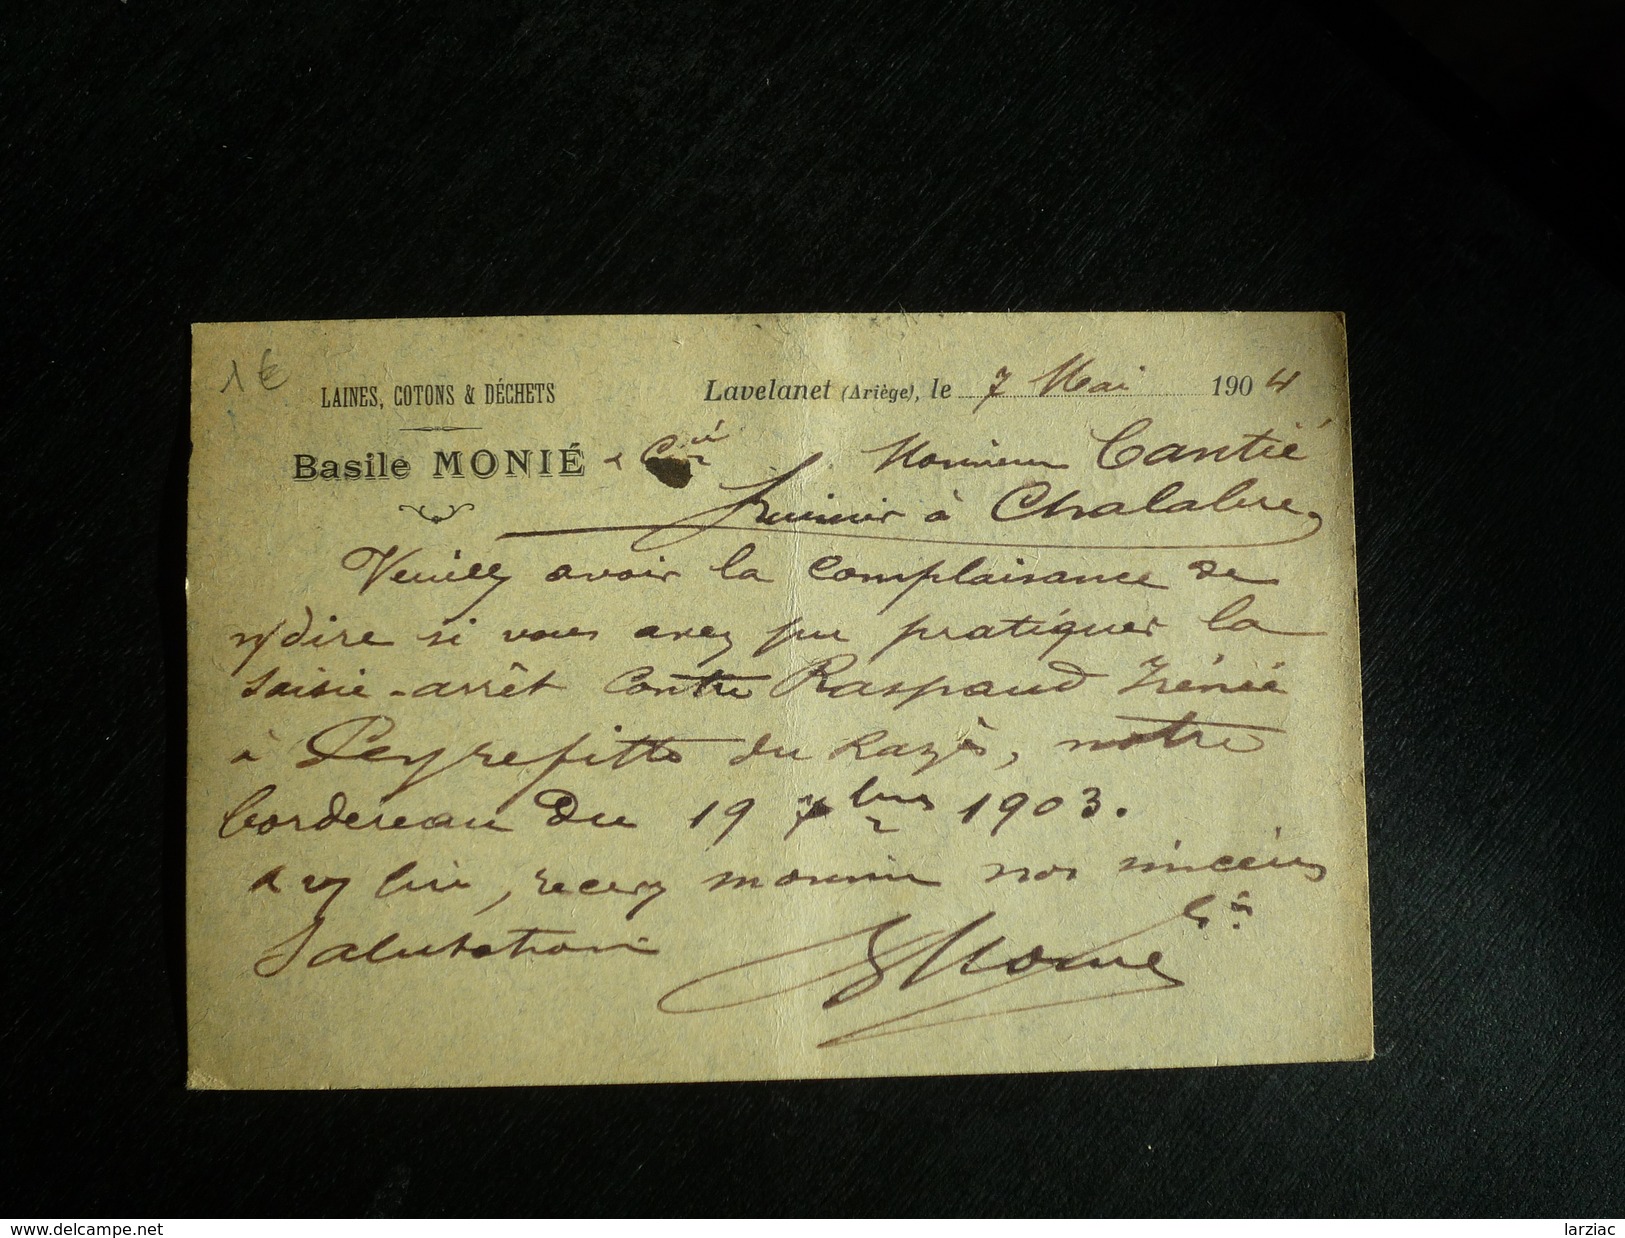 1 €
LAINES, COTONS & DÉCHETS
Lavelanet (Ariège), le 7 Mai 1904
Basile MONIÉ & Cie
Monsieur Cantié
huissier à Chalabre,
Veuillez avoir la Complaisance de
n/dire si vous avez pu pratiquer la
saisie-arrêt Contre Raspaud Irénée
à Peyrefitte du Razès, notre
bordereau du 19 7bre 1903.
recevez monsieur nos sincères
Salutations
B Monié Cie
delcampe.net
larziac